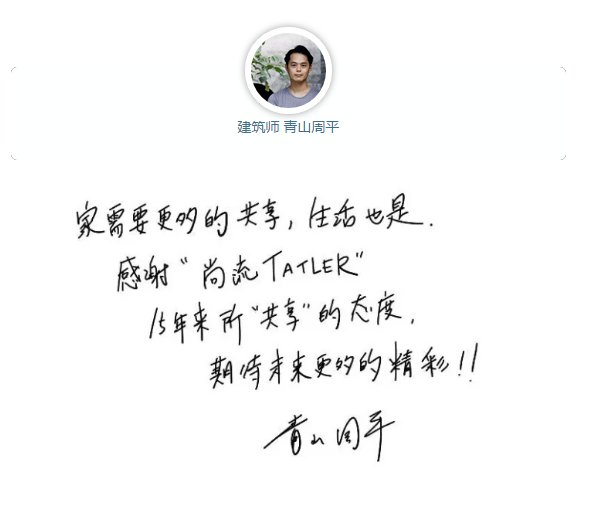 建筑师 青山周平
家需要更多的共享，生活也是.
感谢“尚流TATLER”
15年来所“共享”的态度，
期待未来更多的精彩！！
青山周平